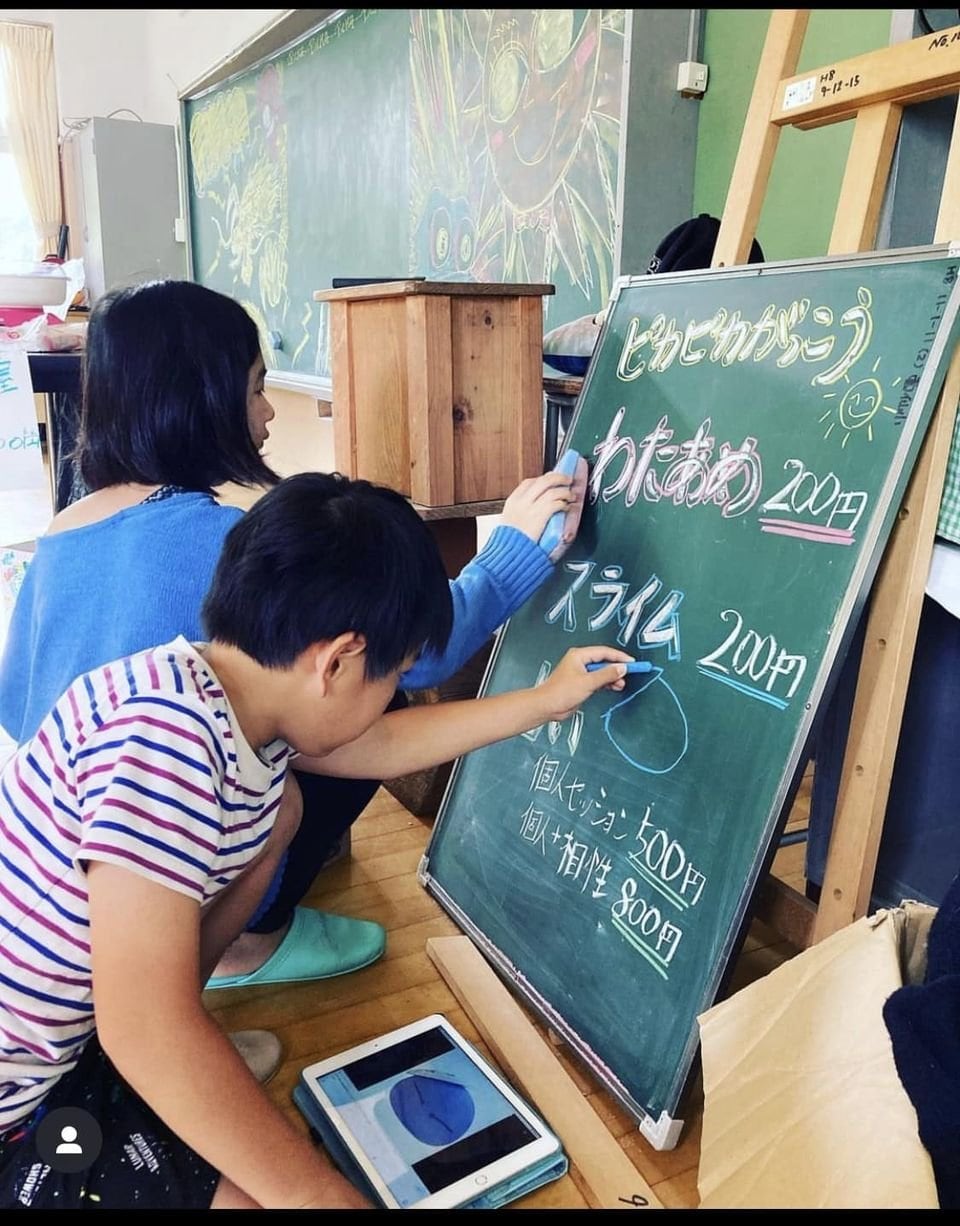 ピカピカがっこう
わたあめ 200円
スライム 200円
個人セッション 500円
個人+相性 800円
H8
9-12-15
No.
LUMP
ADVENTURES
SHOWER
9